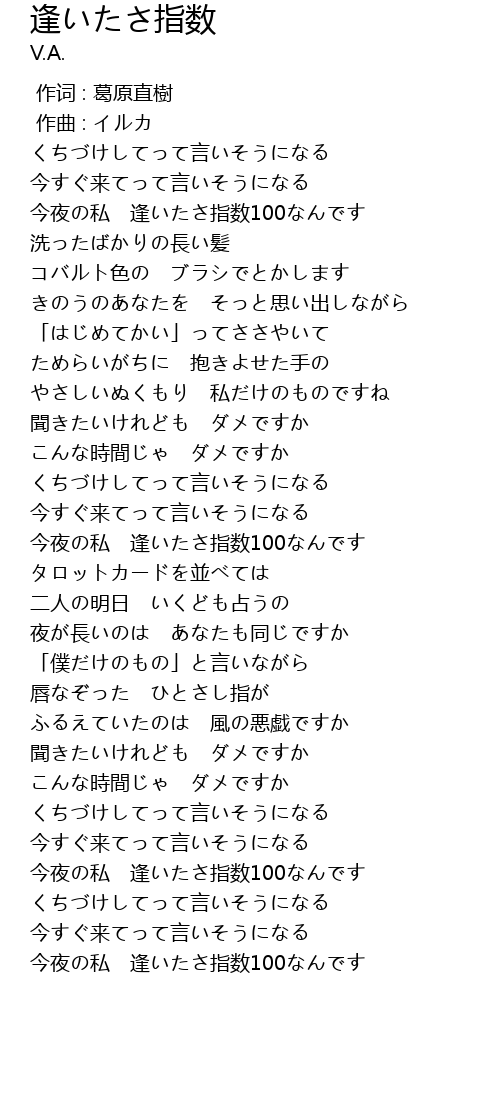 逢いたさ指数
V.A.
作词 : 葛原直樹
作曲 : イルカ
くちづけしてって言いそうになる
今すぐ来てって言いそうになる
今夜の私　逢いたさ指数100なんです
洗ったばかりの長い髪
コバルト色の　ブラシでとかします
きのうのあなたを　そっと思い出しながら
「はじめてかい」ってささやいて
ためらいがちに　抱きよせた手の
やさしいぬくもり　私だけのものですね
聞きたいけれども　ダメですか
こんな時間じゃ　ダメですか
くちづけしてって言いそうになる
今すぐ来てって言いそうになる
今夜の私　逢いたさ指数100なんです
タロットカードを並べては
二人の明日　いくども占うの
夜が長いのは　あなたも同じですか
「僕だけのもの」と言いながら
唇なぞった　ひとさし指が
ふるえていたのは　風の悪戯ですか
聞きたいけれども　ダメですか
こんな時間じゃ　ダメですか
くちづけしてって言いそうになる
今すぐ来てって言いそうになる
今夜の私　逢いたさ指数100なんです
くちづけしてって言いそうになる
今すぐ来てって言いそうになる
今夜の私　逢いたさ指数100なんです